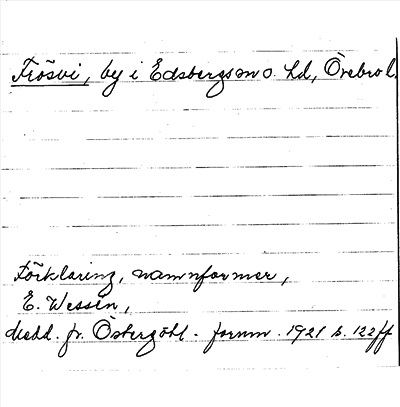 Frösvi, by i Edsbergs sn o. hd, Örebro l.
Förklaring, namnformer,
E. Wessén,
Medd. fr. Östergötl. fornm. 1921 s. 122ff